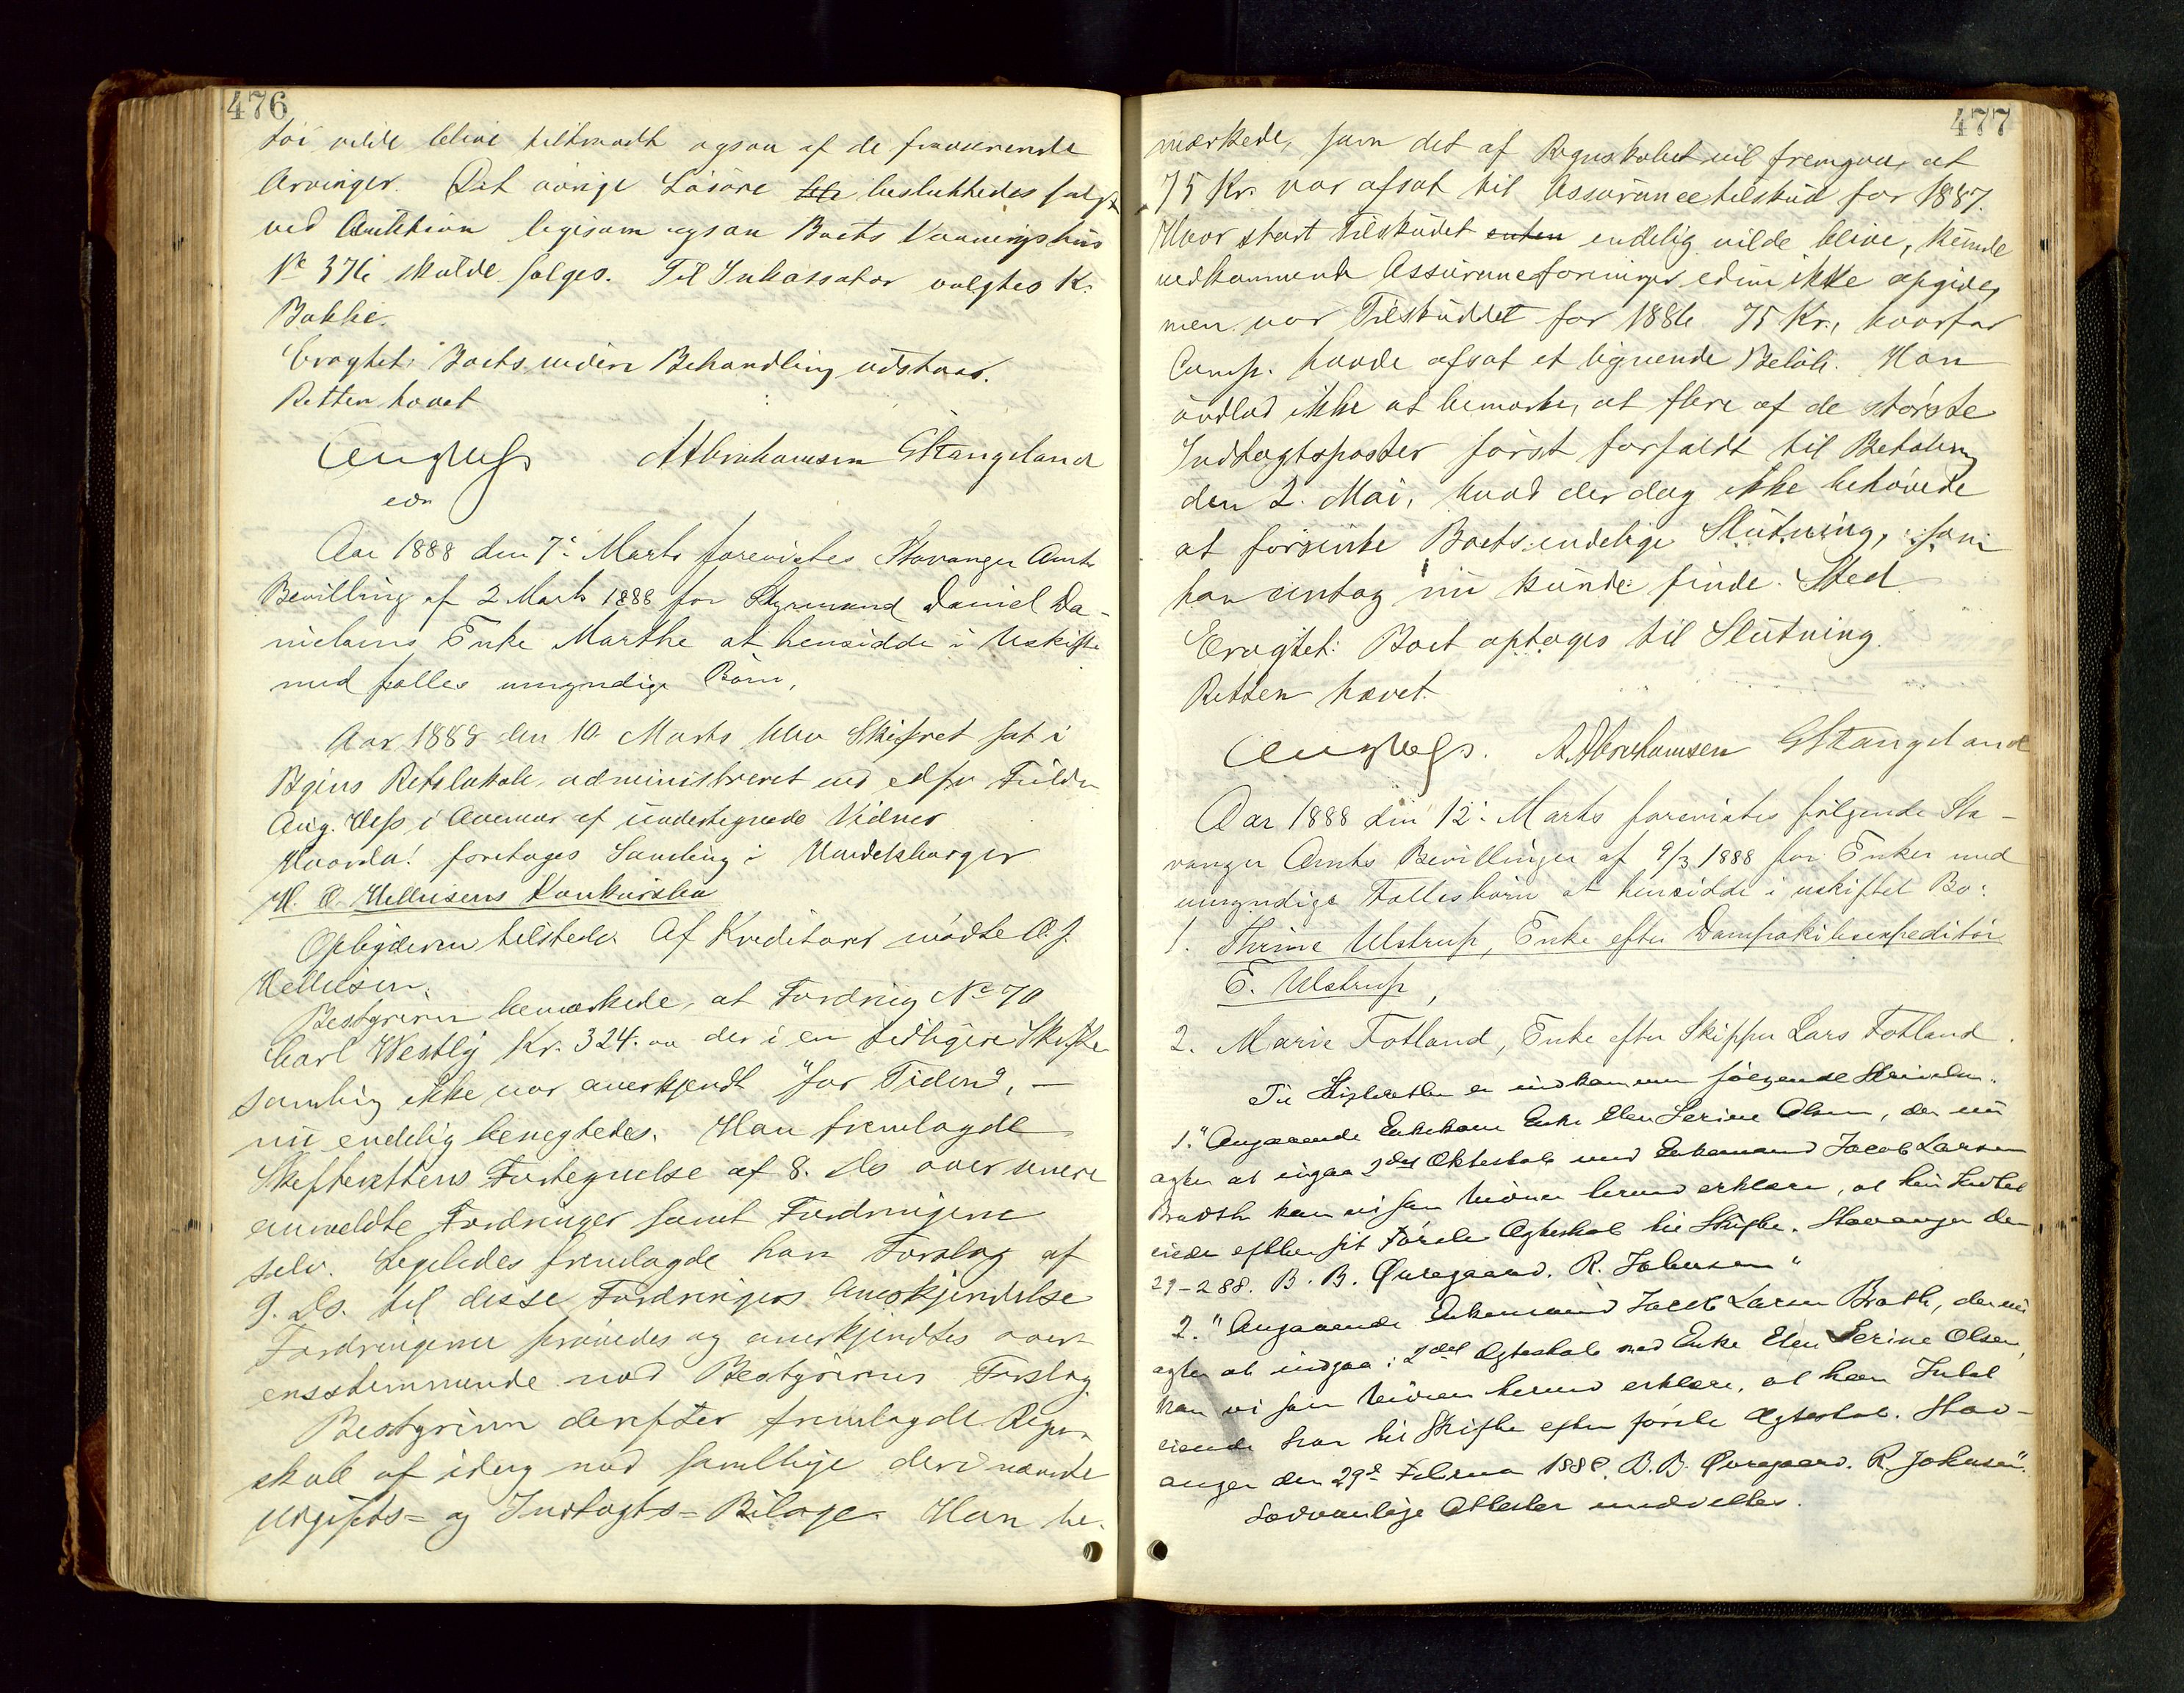 476
tøi vilde blive tiltraadt ogsaa af de fraværende
Arvinger. Det øvrige Løsøre besluttedes solgt
ved Auktion ligesom ogsaa Boets Vaaningshus
No 376 skulde sælges. Til Inkassator valgtes K.
Bakke.
Eragtet: Boets videre Behandling udstaar.
Retten hævet
Aug Hess A Abrahamsen GStangeland
Aar 1888 den 7de Marts forevistes Stavanger Amts
Bevilling af 2 Marts 1888 for Styrmand Daniel Da-
nielsens Enke Marthe at hensidde i Uskifte
med fælles umyndige Børn.
Aar 1888 den 10. Marts blev Skifteret sat i
Byens Retslokale, administreret ved edsv Fuldm
Aug. Hess i Overvær af undertegnede Vidner
Hvorda! foretoges Samling i Handelsborger
H. O. Hellesens Konkursbo
Opbyderen tilstede. Af Kreditorer mødte O. J.
Hellesen.
Bestyreren bemærkede, at Fordring No 70
Carl Westly Kr. 324. der i en tidligere Skifte
samling ikke var anerkjendt "for Tiden", —
nu endelig benegtedes. Han fremlagde
Skifterettens Fortegnelse af 8. ds over senere
anmeldte Fordringer samt Fordringerne
selv. Ligeledes fremlagde han Forslag af
9. Ds. til disse Fordringers Anerkjendelse
Fordringerne prøvedes og anerkjendtes over-
ensstemmende med Bestyrerens Forslag
Bestyreren derefter fremlagde Regn-
skab af idag med samtlige deri nævnte
Udgifts= og Indtægts=Bilage. Han be-
477
mærkede, som det af Regnskabet vil fremgaa, at
75 Kr. var afsat til Assurancetilskud for 1887.
Hvor stort Tilskudet enten endelig vilde blive, kunde
vedkommende Assuranceforeninger endnu ikke opgive,
men var Tilskuddet for 1886 75 Kr., hvorfor
Comp. havde afsat et lignende Beløb. Han
undlod ikke at bemærke, at flere af de største
Indtægtsposter først forfaldt til Betaling
den 2. Mai, hvad der dog ikke behøvede
at forsinke Boets endelige Slutning, som
han antog nu kunde finde Sted.
Eragtet: Boet optages til Slutning.
Retten hævet.
Aug Hess. A. Abrahamsen GStangeland
Aar 1888 den 12te Marts forevistes følgende Sta-
vanger Amts Bevillinger af 9/3 1888 for Enker med
umyndige Fællesbørn at hensidde i uskiftet Bo:
1. Thrine Ulstrup, Enke efter Dampskibsexpeditør
E. Ulstrup,
2. Marie Fotland, Enke efter Skipper Lars Fotland.
Til Skifteretten er indkommen følgende Skrivelser:
1. "Angaaende Enkekone Enke Elen Serine Olsen, der nu
agter at indgaa 2det Ækteskab med Enkemand Jacob Larsen
Bradth kan vi som Vidner herved erklære, at hun Intet
eiede efter sit første Ægteskab til Skifte. Stavanger den
29-2 88. B. B. Øvregaard. R. Johnsen"
2. "Angaaende Enkemand Jacob Larsen Brath, der nu
agter at indgaa i 2det Ægteskab med Enke Elen Serine Olsen,
kan vi som Vidner herved erklære, at han Intet
eiende har til Skifte efter første Ægteskab. Stav-
anger den 29de Februar 1888. B. B. Øvregaard. R. Johnsen".
Sedvanlige Attester meddeltes.